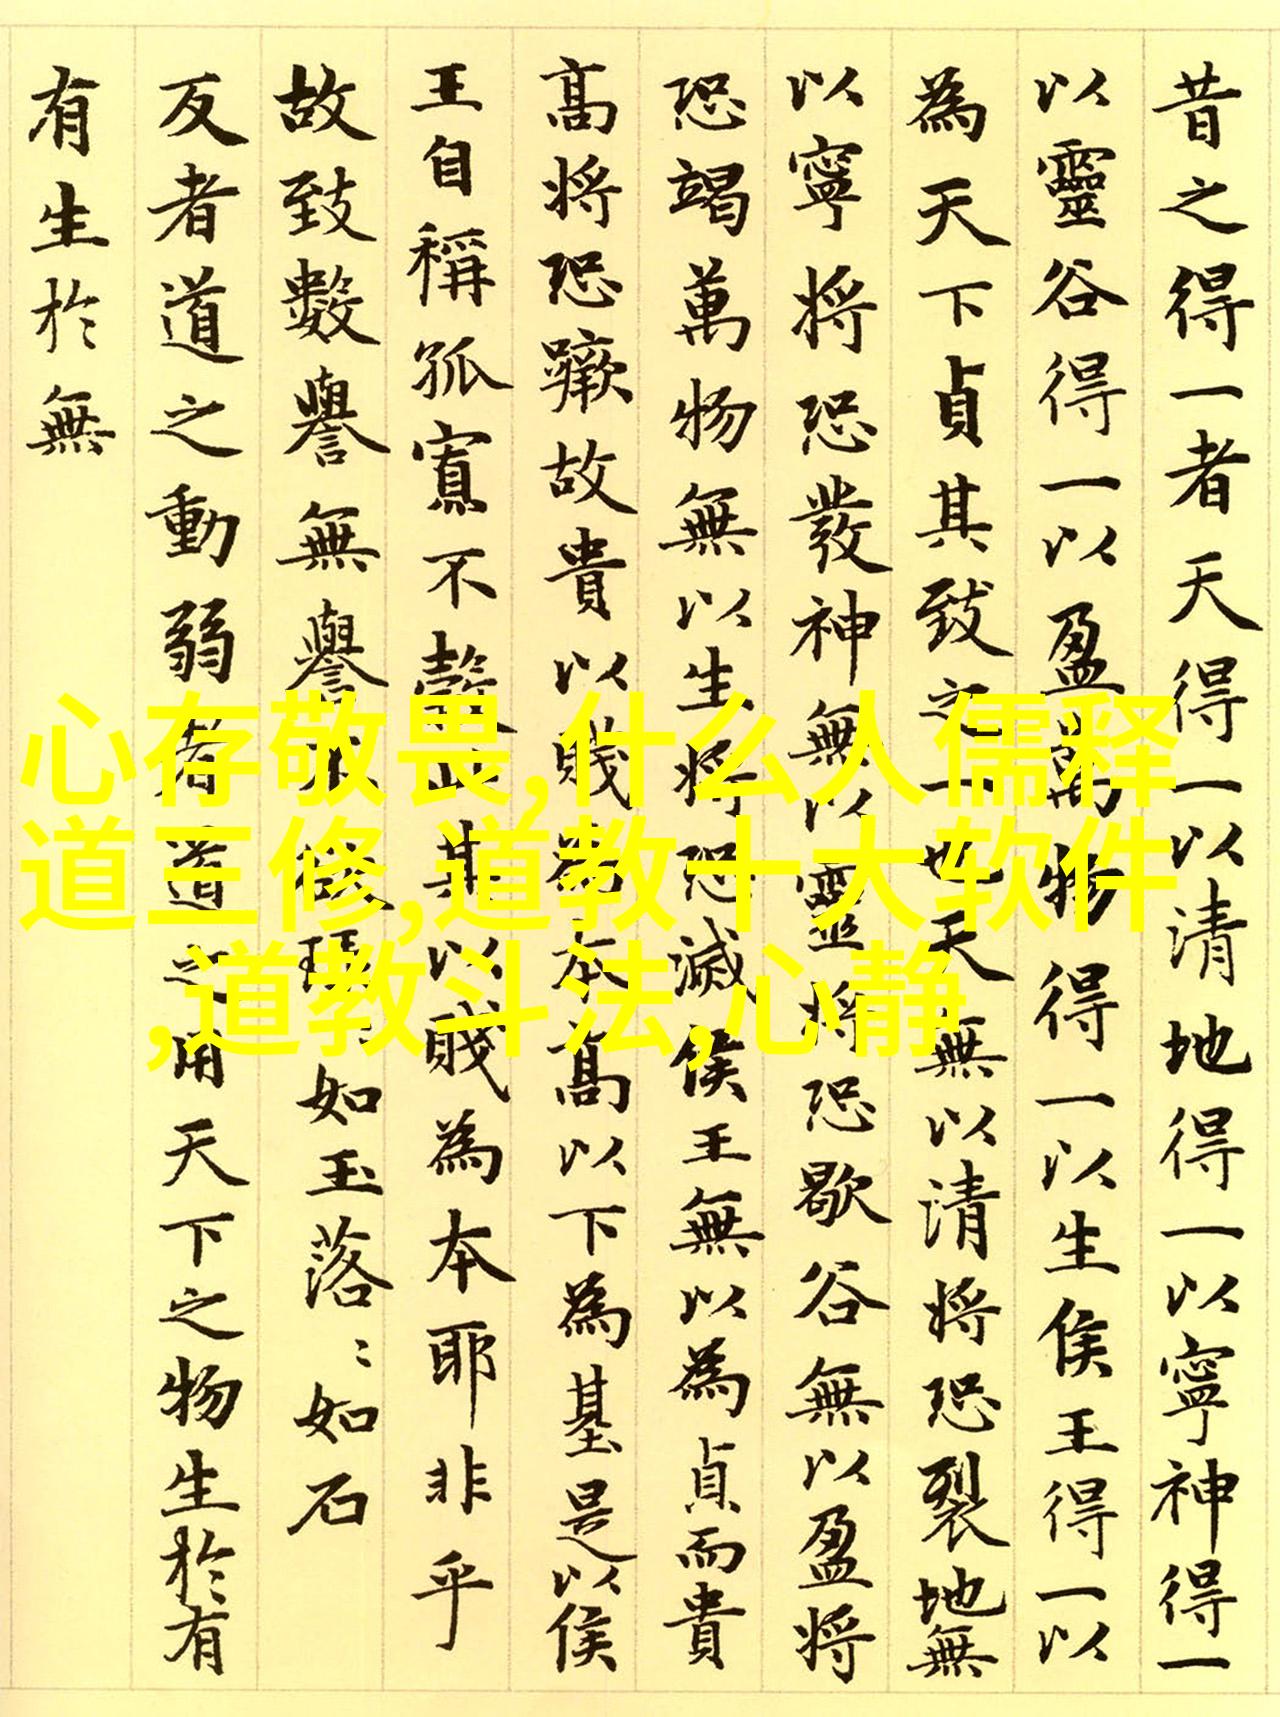 昔之得一者天得一以清地得一以寧神得一
以靈谷得一以盈萬物得一以生侯王得一以
為天下貞其致之一也天無以清将恐裂地無
以寧将恐發神無以靈将恐歇谷無以盈将
恐竭萬物無以生将恐滅侯王無以為貞而貴
高将恐蹶故貴以賤為本高以下為基是以侯
王自稱孤寡不轂此其以賤為本耶非乎
故致數譽無譽不欲琭〻如玉落〻如石
反者道之動弱者道之用天下之物生於有
有生於無
心存敬畏,什么人儒释
道三修,道教十大软件
,道教斗法,心静